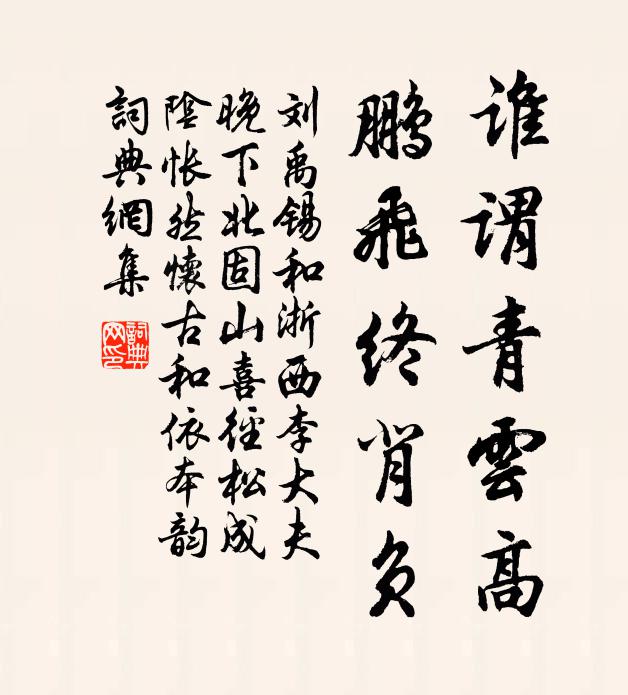 谁謂青雲高
鵬飛终背负
刘禹锡和浙西李大夫
晚下北固山喜徑松成
陰怅然懷古和依本韵
詞典網集
詞典
网印